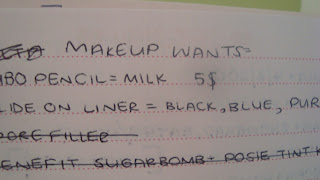 MAKEUP WANTS=
PENCIL = MILK 5$
ON LINER = BLACK, BLUE, PUR
FILLER
SUGARBOMB + POSIE TINT